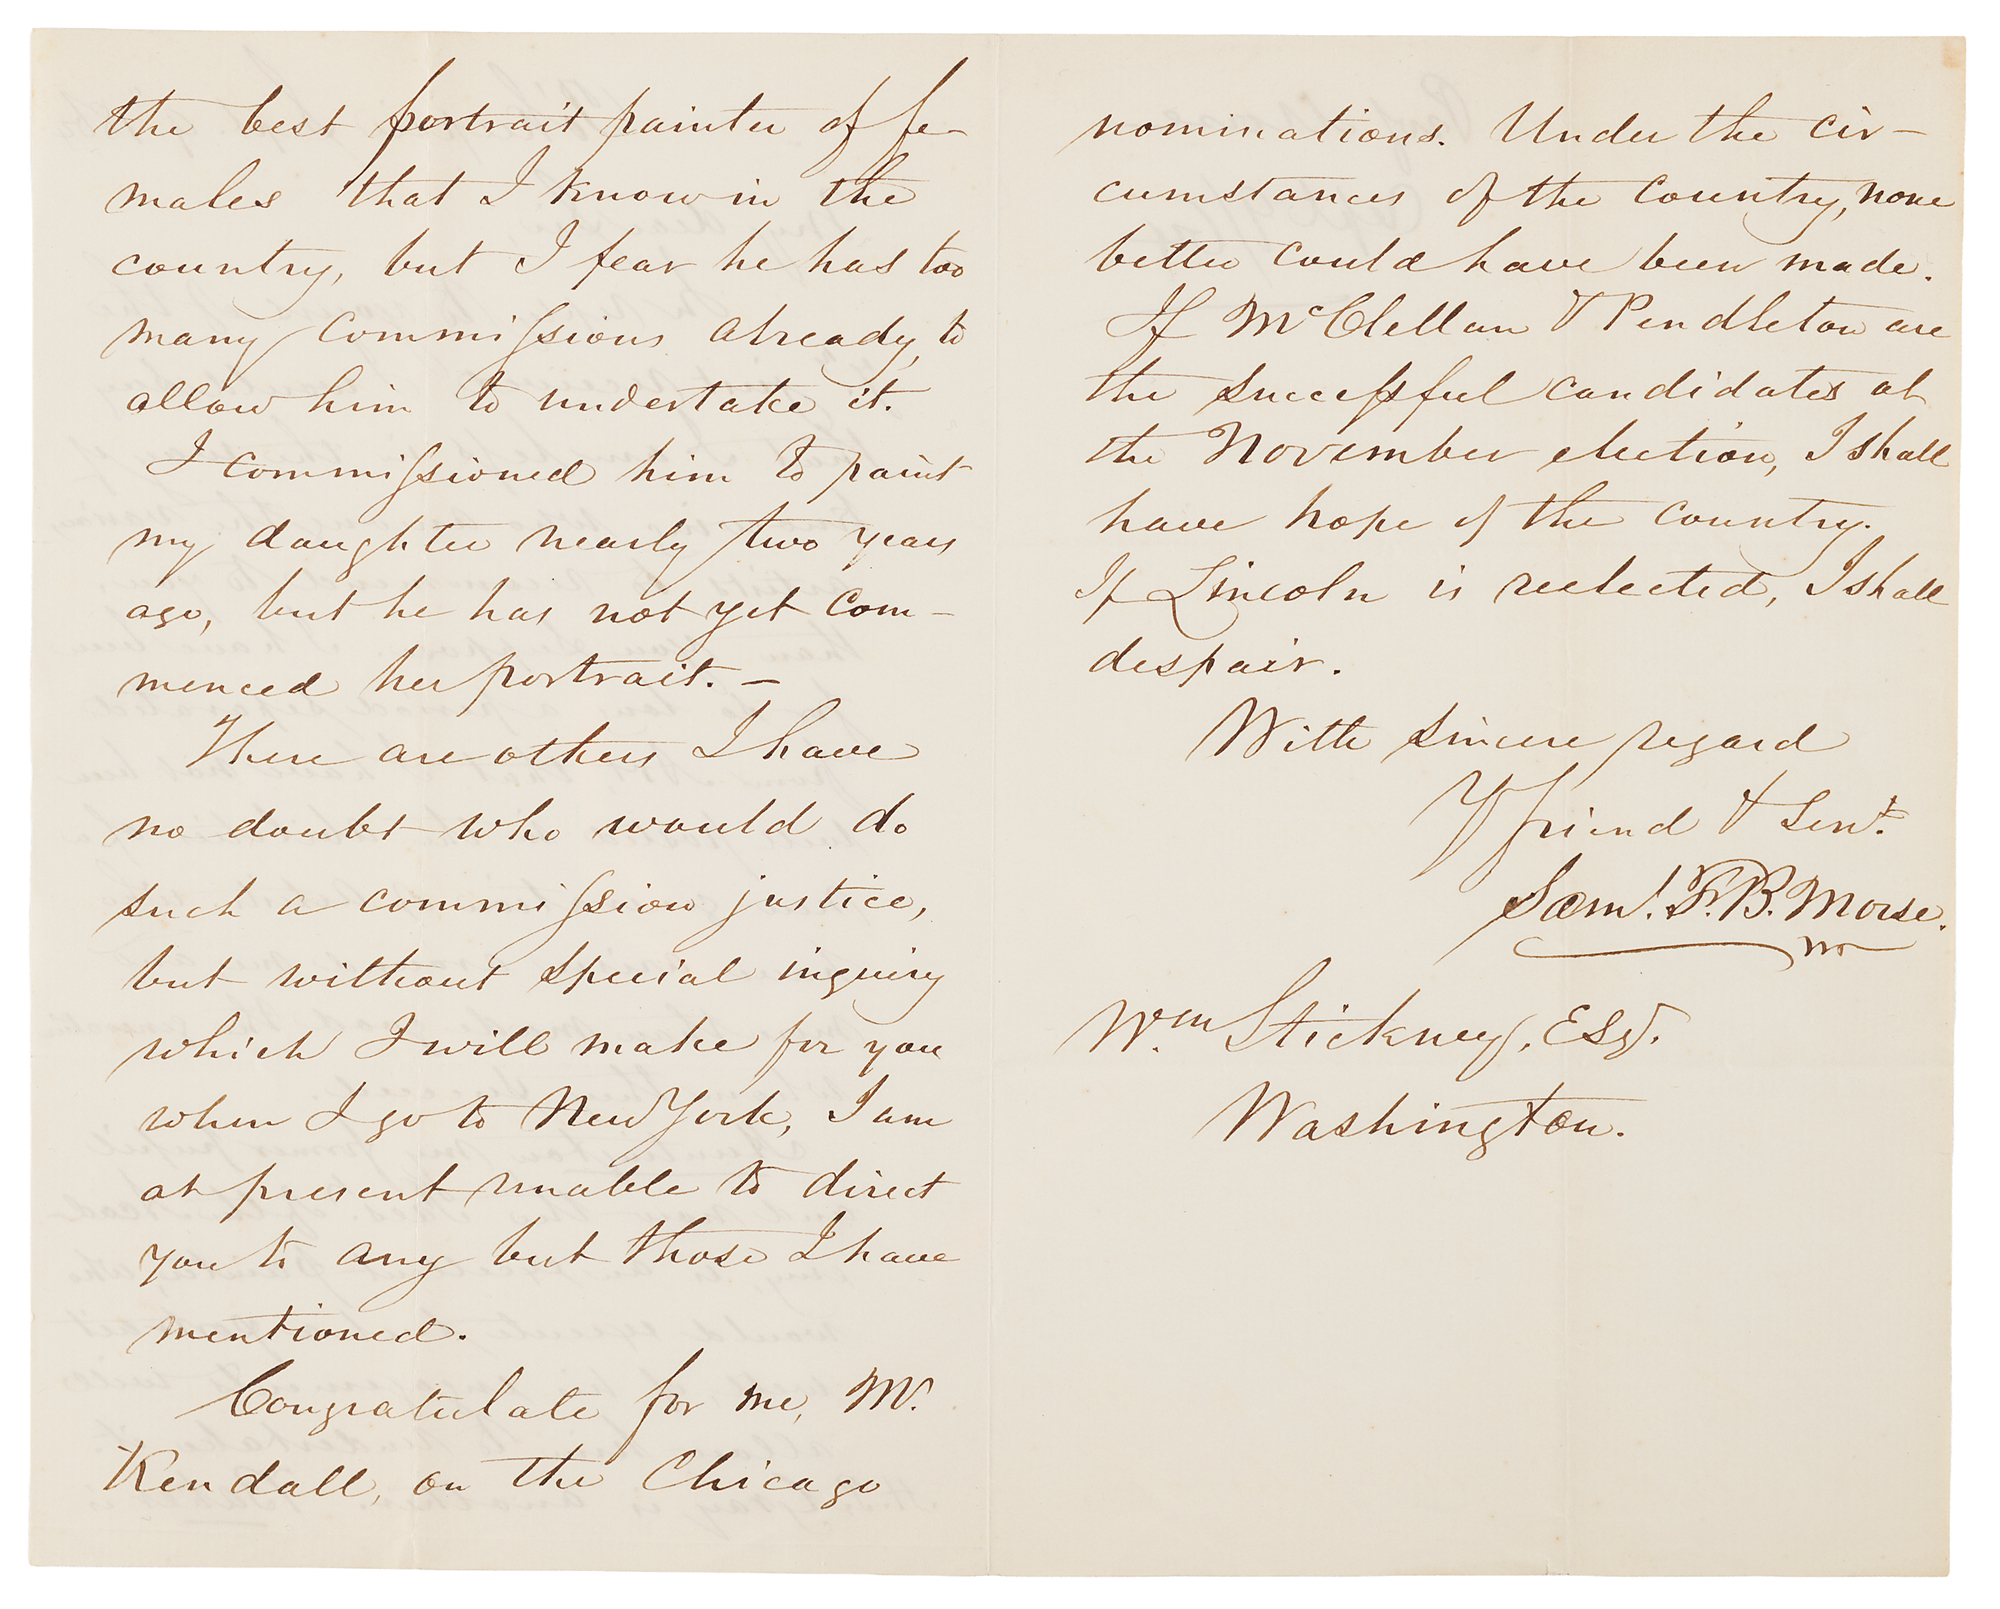 the best portrait painter of fe-
males that I know in the
country, but I fear he has too
many commissions already, to
allow him to undertake it.
I commissioned him to paint
my daughter nearly two years
ago, but he has not yet com-
menced her portrait. —
There are others I have
no doubt who would do
such a commission justice,
but without special inquiry
which I will make for you
when I go to New York, I am
at present unable to direct
you to any but those I have
mentioned.
Congratulate for me, Mr.
Kendall, on the Chicago
nominations. Under the cir-
cumstances of the country, none
better could have been made.
If McClellan & Pendleton are
the successful candidates at
the November election, I shall
have hope of the country.
If Lincoln is reelected, I shall
despair.
With sincere regard
Yr friend & Servt.
Saml. F. B. Morse.
Wm. Stickney, Esqr.
Washington.